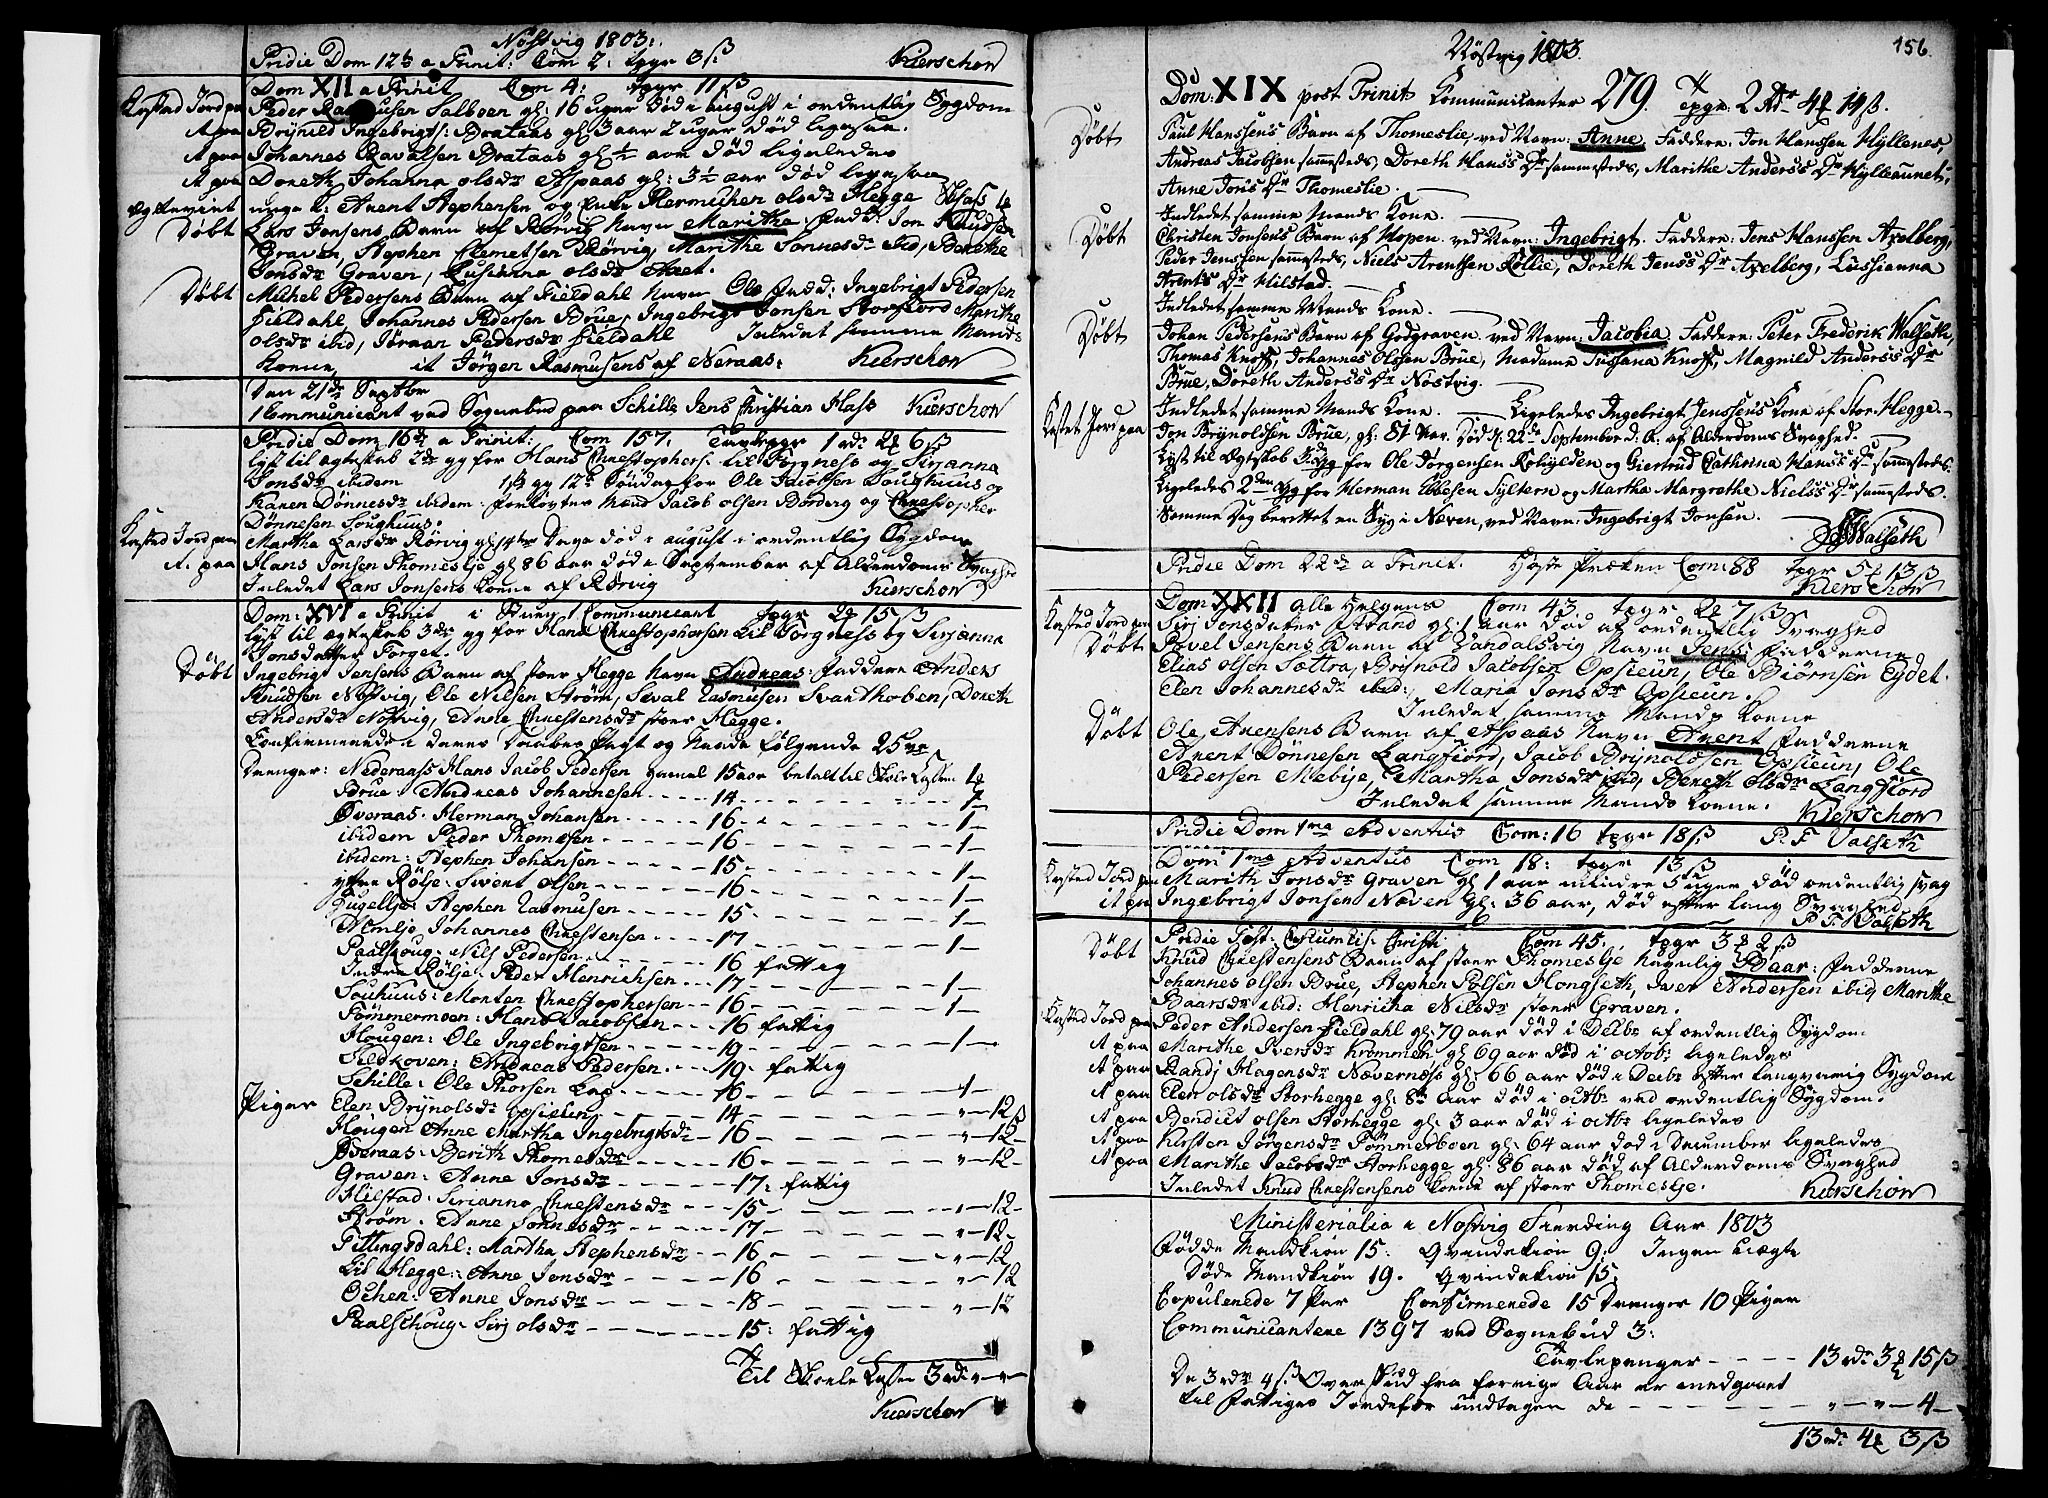 Nøstvig 1803:
Pridie Dom 12te a Trinit: Com 2: tpgr 8ß Kierschow
Dom XII a Trinit Com 4: tpgr 11ß
Kasted Jord paa Peder Salboen gl: 16 uger død i August i ordentlig Sygdom
A paa Brynild Ingebrigts: Brataas gl 3 aar 2 uger død
A paa Johannes Brataas gl ½ aar død ligeledes
A paa Doreth Johanna olsdr Aspaas gl: 3½ aar død
Arent Stephensen og olsdr Hegge
Døbt Lars Jonsens Barn af Rørvig Navn Maritha: Fadd: Jon Knudsen
Graven, Stephen Clemetsen Rørvig, Marithe ibid, Berethe
Jonsdr Graven, Lusianna olsdr
Døbt Michel Pedersens Barn af Fieldahl Navn Ole Fadd: Ingebrigt Pedersen
Fieldahl, Johannes Pedersen Brue, Ingebrigt Jonsen Storfiord Marithe
olsdr ibid, Jøraan Pedersdr Fieldahl Inledet samme Mands
Koene, it Jørgen Rasmusens af Neraas: Kierschow
Den 21de Septbr
1 Communicant ved Sognebud paa Schille Jens Christian Hass Kierschow
Pridie Dom 16de a Trinit: Com 157. Tavlepgr 1 rdr 2 6ß
lyst til ægteskab 2de gg for Hans Christophers: til Forgness og Sirianna
Jonsdr ibidem 1ste gg 12te Søndag for Ole Jacobsen Soughuus og
Karen Dønnesdr ibidem. forlovter Mænd Jacob olsen og Christopher
Dønnesen Soughuus.
Kasted Jord paa Martha Larsdr Rørvig gl Dage død i august i ordentlig Sygdom
A. paa Hans Jonsen Thomeslie gl 86 aar død i September af Alderdoms Svaghed
Inledet Lars Jonsens Koene af Rørvig Kierschow
Dom: XVI a Trinit 1 Communicant tpgr 2 15ß
lyst til ægteskab 3de gg for Hans Christophersen til Forgness og Sirjanna
Jonsdatter Forget.
Døbt Ingebrigt Jensens Barn af stoer Hegge Navn Andreas: Faddere Anders
Knudsen Nostvig, Ole Nilsen Strøm, Sival Rasmusen Svarthoben, Doreth
Andersdr Nostvig, Anne Christensdr stoer Hegge.
Confirmerede i deres Daabes Pagt og Naade følgende 25ve
Drenger: Nederaass Hans Jacob Pedersen gamel 15 aar betalt til Skole Cassen 1
Brue: Andreas Johannesen - - - 14 - - - 1
Øveraas: Herman Johansen - - - 16 - - - 1 -
ibidem Peder Thomesen - - - 16 - - - 1 -
ibidem: Stephen Johansen - - - 15 - - - 1 -
yttre Rølje: Sivert olsen - - - 16 - - - 1 -
Stephen Rasmusen - - - 15 - - - 1 -
Johannes Christensen - - - 17 - - - 1 -
Paalskoug: Nils Pedersen - - - 16 fattig
Indre Rølje: Peder Henrichsen - - - 17 - - - 1 -
Souhuus: Morten Christophersen - - - 16 - - - 1 -
Tømmermoen: Hans Jacobsen - - - 16 fattig
Hougen: Ole Ingebrigtsen - - - 19 - - - 1 -
Sildkoven: Andreas Pedersen - - - 19 - fattig
Schille: Ole Thorsen Lap - - - 16 - - - 1 -
Piger Elen Brynolsdr - - - 14 - - - 12ß
Hougen Anne Martha Ingebrigtsdr - 16 - - - 12 -
Øveraas: Berith Thomesdr - - - 16 - - - 12 -
Graven: Anne Jonsdr - - - 17: fattig
Hilstad: Sirianna Christensdr - - - 15 - - - 12 -
Strøm: Anne Jonnesdr - - - 17 - - - 12 -
Tittingsdahl: Martha Stephensdr - - - 16 - - - 12
Lil Hegge: Anne Jonsdr - - - 16 - - - 12
Anne Jonsdr - - - 18 - - - 12
Paalschoug: Siri olsdr - - - 15: fattig
Til Skoele Cassen 3 rdr
Kierschow
156.
Nöstvig 1803.
Dom: XIX post Trinit: Kommunicanter 279. tpgr: 2 Rdr 4 14ß.
Døbt Paul Hanssens Barn af Thomeslie, ved Navn: Anne. Faddere: Jon Hanssen Hylleunes,
Andreas Jacobsen sammesteds, Doreth Hans's Dr sammesteds, Marithe Anders's Dr Hylleaunet,
Anne Jons Dr Thomeslie.
Indledet samme Mands Kone.
Døbt Christen Jonsens Barn af Hopen. ved Navn: Ingebrigt. Faddere: Jens Hanssen Axelberg,
Peder Jenssen sammesteds, Niels Arentsen Röllie, Doreth Jens's Dr Axelberg, Lussianna
Arents Dr Hilstad.
Indledet samme Mands Kone.
Døbt Johan Pedersens Barn af Godgraven. ved Navn: Jacobia. Faddere: Peter Frederik Walseth,
Thomas Knoff, Johannes Olssen Brüe, Madame Sussana Knoff, Magnild Anders's Dr
Brüe, Doreth Anders's Dr Nostvig.
Indledet samme Mands Kone. Ligeledes Ingebrigt Jenssens Kone af Stor-Hegge.
Kastet Jord paa Jon Brynoldsen Brüe, gl: 81 Aar. Død d: 22de September d: A: af Alderdoms Svaghed.
Lyst til Ægteskab for Ole Jørgensen Röhylden og Giertrud Cathrina Hans's Dr sammesteds.
Ligeledes 2den Gg for Herman Ebbesen Syltern og Martha Margrethe Niels's Dr sammesteds.
Samme Dag berettet en Syg i Næven, ved Navn: Ingebrigt Jonsen.
Walseth
Pridie Dom 22de a Trinit. Com: 88 tpgr 5 13ß
Kierschow
Dom XXII Alle Helgens Com 43. tpgr 2 7ß
Kasted Jord paa Siri Jonsdater gl: 1 aar død af ordentlig Svaghed
Døbt Povel Jensens Barn af Vandalsvig Navn Jens: Fadderne
Elias olsen Sættra, Brynold Jacobsen Opsieun, Ole Biørnsen Eydet.
Elen Johannesdr ibid:, Maria Jonsdr Opsieun.
Inledet samme Mands Koene
Døbt Ole Arensens Barn af Aspaas Navn Arent Fadderne
Arent Dønnesen Langfiord, Jacob Brynoldsen Opsieun, Ole
Pedersen Mebye, Martha Jonsdr ibid, Bereth olsdr Langfiord
Inledet samme Mands Koene. Kierschow
Pridie Dom 1ma Adventus Com: 16 tpgr 18ß P. F Valseth
Dom 1ma Adventus Com 18: tpgr 13ß
Kasted Jord paa Marith Jonsdr Graven gl 1 aar mindre 5 uger død ordentlig svag
it paa Ingebrigt Jonsen Næven gl: 36 aar, død efter lang Svaghed
P. F. Walseth
Pridie Fest: Circumcis: Christi Com 45. tpgr 3 2ß
Døbt Knud Christensens Barn af stoer Thomeslje navnlig Baar: Fadderne
Johannes olsen Brue, Stephen Polsen Hongseth, Iver Andersen ibid, Marithe
Baarsdr ibid: Henricha Nilsdr stoer Graven.
Kasted Jord paa Peder Andersen Fieldahl gl: 79 aar død i Decbr af ordentlig Sygdom
A paa Marithe Iversdr Krommen gl 69 aar død i octob: ligeledes
A paa Randj Hagensdr Nævernæss gl 66 aar død i Decbr efter langvarig Sygdom
A paa Elen olsdr Storhegge gl: 8te Aar død i octbr ved ordentlig Sygdom.
A paa Bendict olsen Storhegge gl: 3 aar død i octbr ligeledes
A paa Kirsten Jørgensdr Tømmerboen gl: 64 aar død i December ligeledes
A paa Marithe Jacobsdr Storhegge gl: 86 aar død af Alderdoms Svaghed
Inledet Knud Christensens Koene af stoer Thomeslje. Kierschow
Ministerialia i Nostvig Fierding Aar 1803
Fødde Mandkiøn 15: Qvindekiøn 9: Ingen uægte
Døde Mandkiøn 19. Qvindekiøn 15.
Copulerede 7 Par Confirmerede 15 Drenger 10 Piger
Communicantere 1397 ved Sognebud 3:
Tavlepenger - - - 13 rdr 3 15ß
De 3 rdr 4ß Overskud fra forrige Aar er medgaaet
til Fattiges Jordefær undtagen de - - - 4 -
13 rdr 4 3ß